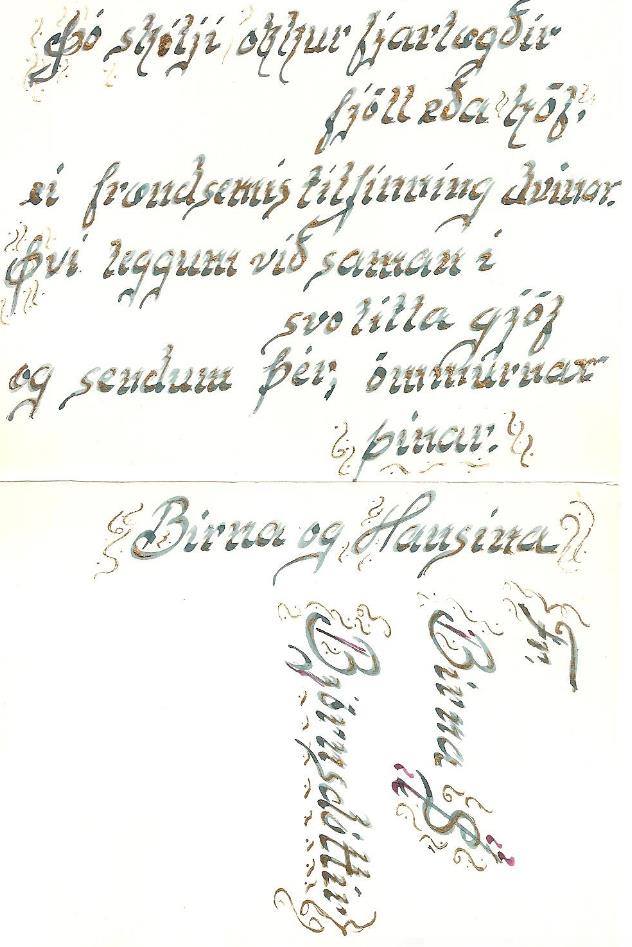 Þó skilji okkur fjarlægðir
fjöll eða höf,
ei frændsemis tilfinning dvínar.
Því leggum við saman í
svo litla gjöf
og sendum þér, ömmurnar
þínar.
Birna og Hansína
Birna
Björnsdóttir